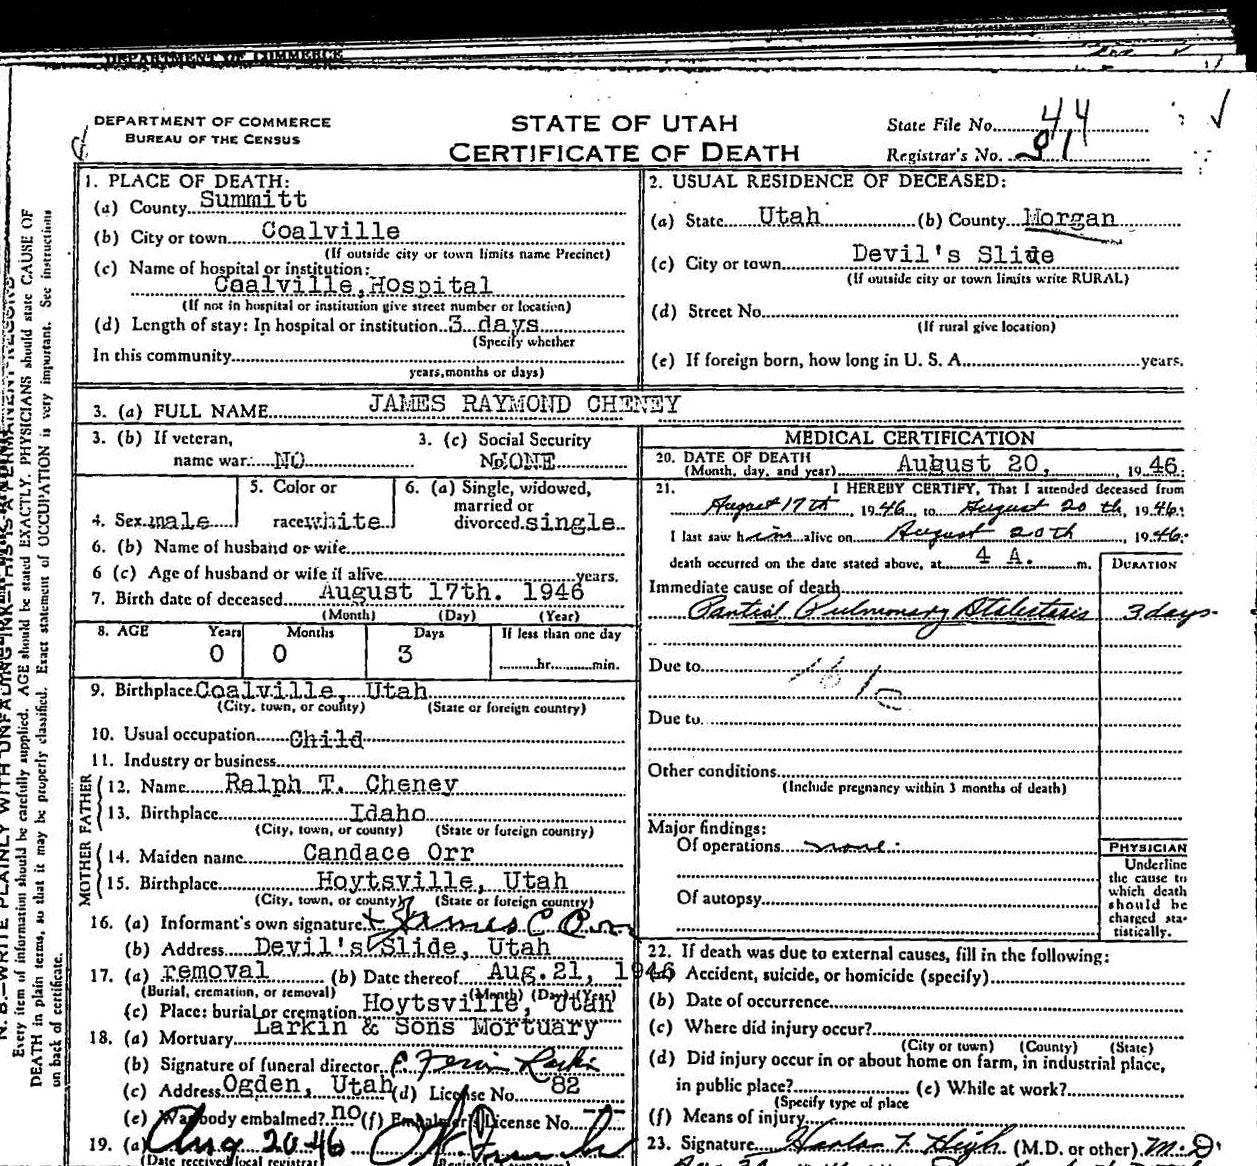 DEPARTMENT OF COMMERCE
DEPARTMENT OF COMMERCE
BUREAU OF THE CENSUS
STATE OF UTAH
CERTIFICATE OF DEATH
State File No. 44
Registrar's No. 81
1. PLACE OF DEATH:
(a) County Summitt
(b) City or town Coalville
(If outside city or town limits name Precinct)
(c) Name of hospital or institution:
Coalville, Hospital
(If not in hospital or institution give street number or location)
(d) Length of stay: In hospital or institution 3 days
(Specify whether
In this community
years, months or days)
2. USUAL RESIDENCE OF DECEASED:
(a) State Utah (b) County Morgan
(c) City or town Devil's Slide
(If outside city or town limits write RURAL)
(d) Street No.
(If rural give location)
(e) If foreign born, how long in U. S. A. years.
3. (a) FULL NAME JAMES RAYMOND CHENEY
3. (b) If veteran, name war: NO
3. (c) Social Security No. NONE
4. Sex male
5. Color or race white
6. (a) Single, widowed, married or divorced. single
6. (b) Name of husband or wife
6 (c) Age of husband or wife if alive years.
7. Birth date of deceased August 17th. 1946
(Month) (Day) (Year)
8. AGE Years Months Days If less than one day
0 0 3 hr. min.
9. Birthplace Coalville, Utah
(City, town, or county) (State or foreign country)
10. Usual occupation Child
11. Industry or business
FATHER
12. Name Ralph T. Cheney
13. Birthplace Idaho
(City, town, or county) (State or foreign country)
MOTHER
14. Maiden name Candace Orr
15. Birthplace Hoytsville, Utah
(City, town, or county) (State or foreign country)
16. (a) Informant's own signature x James C Orr
(b) Address Devil's Slide, Utah
17. (a) removal (b) Date thereof Aug. 21, 1946
(Burial, cremation, or removal) (Month) (Day) (Year)
(c) Place: burial or cremation Hoytsville, Utah
18. (a) Mortuary Larkin & Sons Mortuary
(b) Signature of funeral director Larkin
(c) Address Ogden, Utah (d) License No. 82
(e) Was body embalmed? no (f) Embalmer's License No.
19. (a) Aug 20-46
(Date received local registrar
MEDICAL CERTIFICATION
20. DATE OF DEATH
(Month, day, and year) August 20, 1946.
21. I HEREBY CERTIFY, That I attended deceased from
August 17th, 1946, to August 20th, 1946;
I last saw him alive on August 20th, 1946;
death occurred on the date stated above, at 4 A. m.
DURATION
Immediate cause of death
Partial Pulmonary Atalectasis 3 days
Due to 161
Due to
Other conditions
(Include pregnancy within 3 months of death)
Major findings:
Of operations none.
Of autopsy
PHYSICIAN
Underline
the cause to
which death
should be
charged sta-
tistically.
22. If death was due to external causes, fill in the following:
(a) Accident, suicide, or homicide (specify)
(b) Date of occurrence
(c) Where did injury occur?
(City or town) (County) (State)
(d) Did injury occur in or about home on farm, in industrial place,
in public place? (e) While at work?
(Specify type of place
(f) Means of injury
23. Signature (M.D. or other) M.D.
N. B.—WRITE PLAINLY WITH UNFADING INK—THIS IS A PERMANENT RECORD
Every item of information should be carefully supplied. AGE should be stated EXACTLY. PHYSICIANS should state CAUSE OF
DEATH in plain terms, so that it may be properly classified. Exact statement of OCCUPATION is very important. See instructions
on back of certificate.